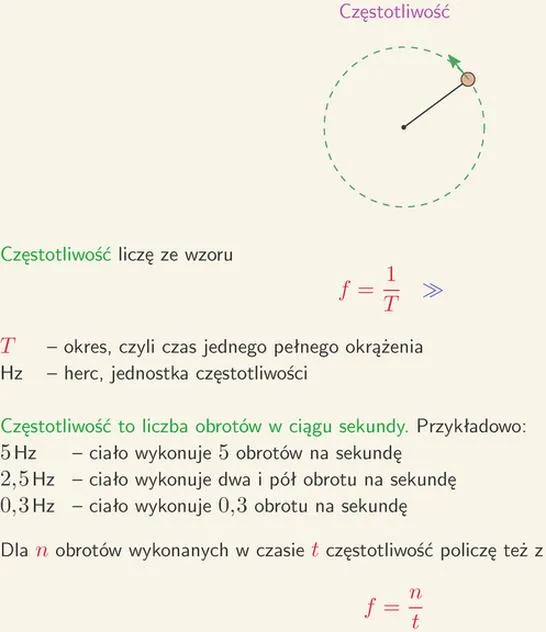 Częstotliwość
Częstotliwość liczę ze wzoru
f = 1/T ≫
T – okres, czyli czas jednego pełnego okrążenia
Hz – herc, jednostka częstotliwości
Częstotliwość to liczba obrotów w ciągu sekundy. Przykładowo:
5 Hz – ciało wykonuje 5 obrotów na sekundę
2,5 Hz – ciało wykonuje dwa i pół obrotu na sekundę
0,3 Hz – ciało wykonuje 0,3 obrotu na sekundę
Dla n obrotów wykonanych w czasie t częstotliwość policzę też z
f = n/t